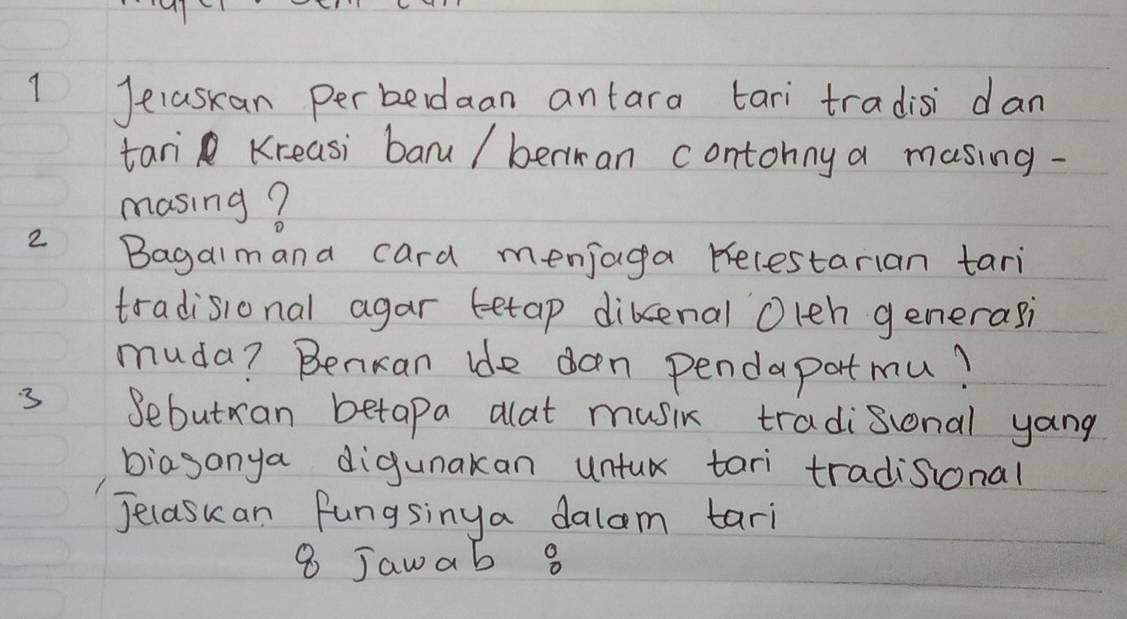 1 Jelaskan perbedaan antara tari tradisi dan
tari kreasi baru / berikan contohnya masing-
masing?
2 Bagaimana cara menjaga kelestarian tari
tradisional agar tetap dikenal oleh generasi
muda? Berikan Ide dan pendapatmu!
3 Sebutkan betapa alat musik tradisional yang
biasanya digunakan untuk tari tradisional
, Jelaskan fungsinya dalam tari
8 Jawab :